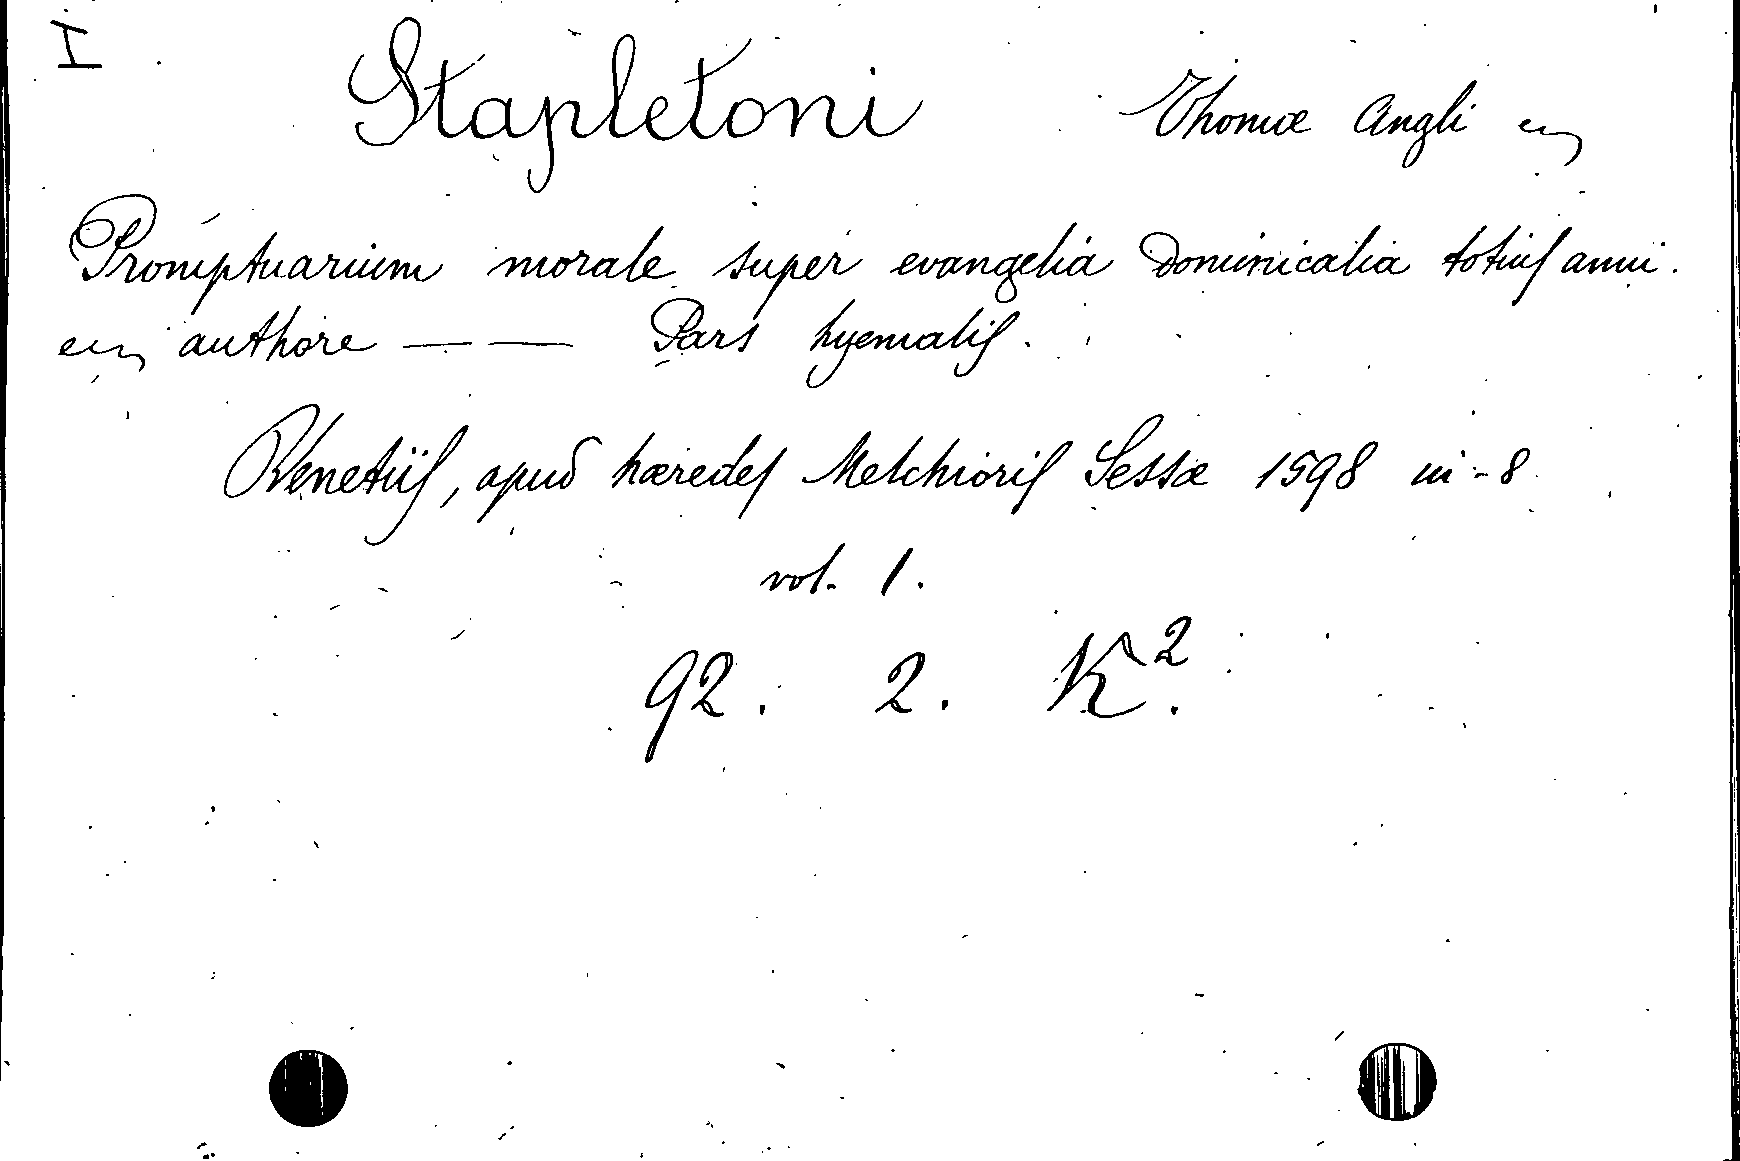 I
Stapletoni Thomæ Angli
Promptuarium morale super evangelia Dominicalia totius anni.
authore — — Pars hyemalis.
Venetiis, apud hæredes Melchioris Sessæ 1598 in-8
vol. 1.
92. 2. K².